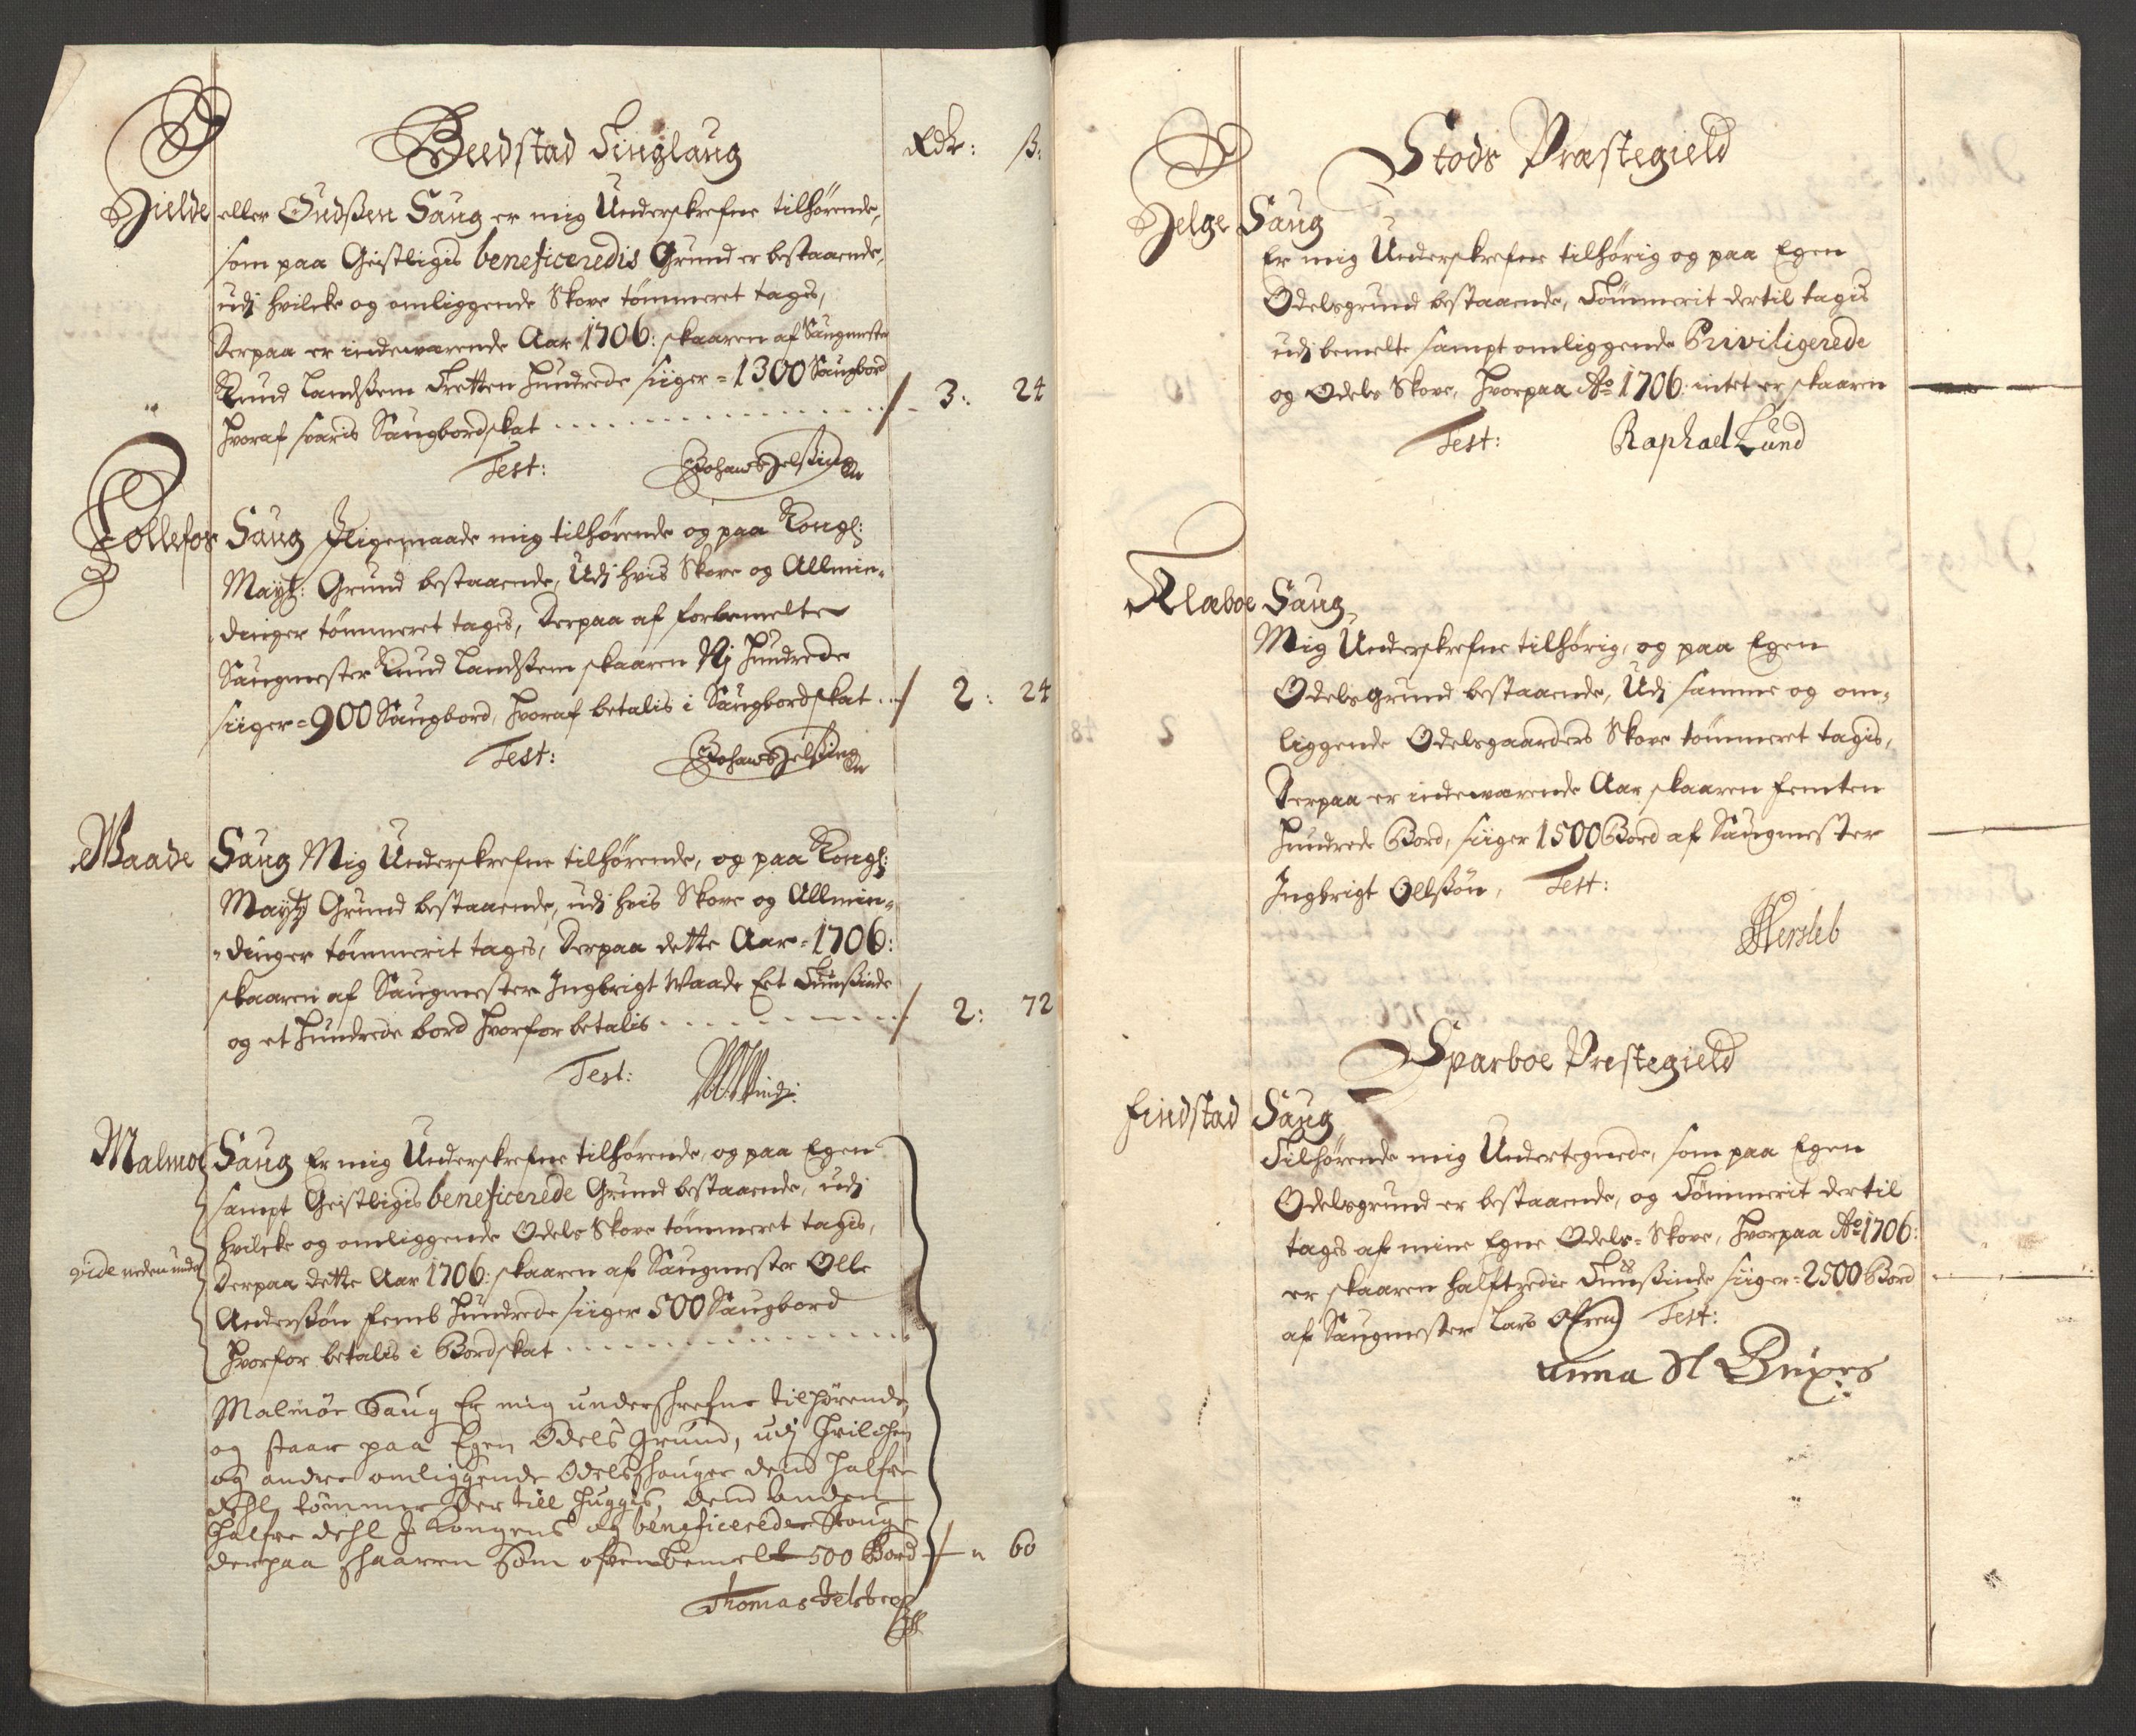 Beedstad Tinglaug
Rdr: ß:
Hielde eller Oudßen Saug er mig Underskrefne tilhørende,
som paa Geistligis beneficeredis Grund er bestaaende,
udj hvilcke og omliggende Skove tømmeret tages,
Derpaa er indewærende Aar 1706: skaaren af Saugmester
Knud Landßem Tretten Hundrede siiger = 1300 Saugbord
hvoraf svaris Saugbordskat / 3: 24
Test:
Follefos Saug Ligemaade mig tilhørende og paa Kongl:
Mayts: Grund bestaaende, Udj hvis Skove og Allmin-
dinger tømmeret tages, Derpaa af forbemelte
Saugmester Knud Landßem skaaren Nj Hundrede
siiger = 900 Saugbord, hvoraf betalis i Saugbordskat / 2: 24
Test:
Waade Saug Mig Underskrefne tilhørende, og paa Kongl:
Mayts Grund bestaaende, udj hvis Skove og Allmin-
dinger tømmerit tages, Derpaa dette Aar = 1706:
skaaren af Saugmester Ingbrigt Waade Eet Tuusinde
og et Hundrede bord hvorfor betalis / 2: 72
Test:
Malmoe Saug Er mig Underskrefne tilhørende, og paa Egen
sampt Geistligis beneficerede Grund bestaaende, udj
hvilcke og omliggende Odels Skove tømmeret tagis,
vide neden under Derpaa dette Aar 1706: skaaren af Saugmester Olle
Anderßøn femb Hundrede siiger 500 Saugbord
hvorfor betalis i Bordskat
Malmøe Saug Er mig underschrefne tilhørende,
og staar paa Egen Odels grund, udj hvilchen
og andre omliggende Odelsschouge dend halfve
dehl tømmer der till huggis, dend anden
halfve dehl I Kongens og beneficerede Skouge
derpaa schaaren som ofvenbemelt 500 Bord / " 60
Stods Præstegield
Helge Saug
Er mig Underskrefne tilhørig og paa Egen
Odelsgrund bestaaende, Tømmerit dertil tagis
udj bemelte sampt omliggende Priviligerede
og Odels Skove, hvorpaa Ao 1706: intet er skaaren
Test: Raphael Lund
Klæboe Saug
Mig Underskrefne tilhørig, og paa Egen
Odelsgrund bestaaende, Udj samme og om-
liggende Odelsgaarders Skove tømmeret tagis,
Derpaa er indewærende Aar skaaren femten
Hundrede Bord, siiger 1500 Bord af Saugmester
Ingbrigt Ollßøn, Test:
Hersleb
Sparboe Prestegield
Findstad Saug
Tilhørende mig Undertegnede, som paa Egen
Odelsgrund er bestaaende, og Tømmerit dertil
tages af mine Egne Odels = Skove, hvorpaa Ao 1706:
er skaaren halftredie Tuusinde siiger = 2500 Bord
af Saugmester Lars Test:
Anna Sl